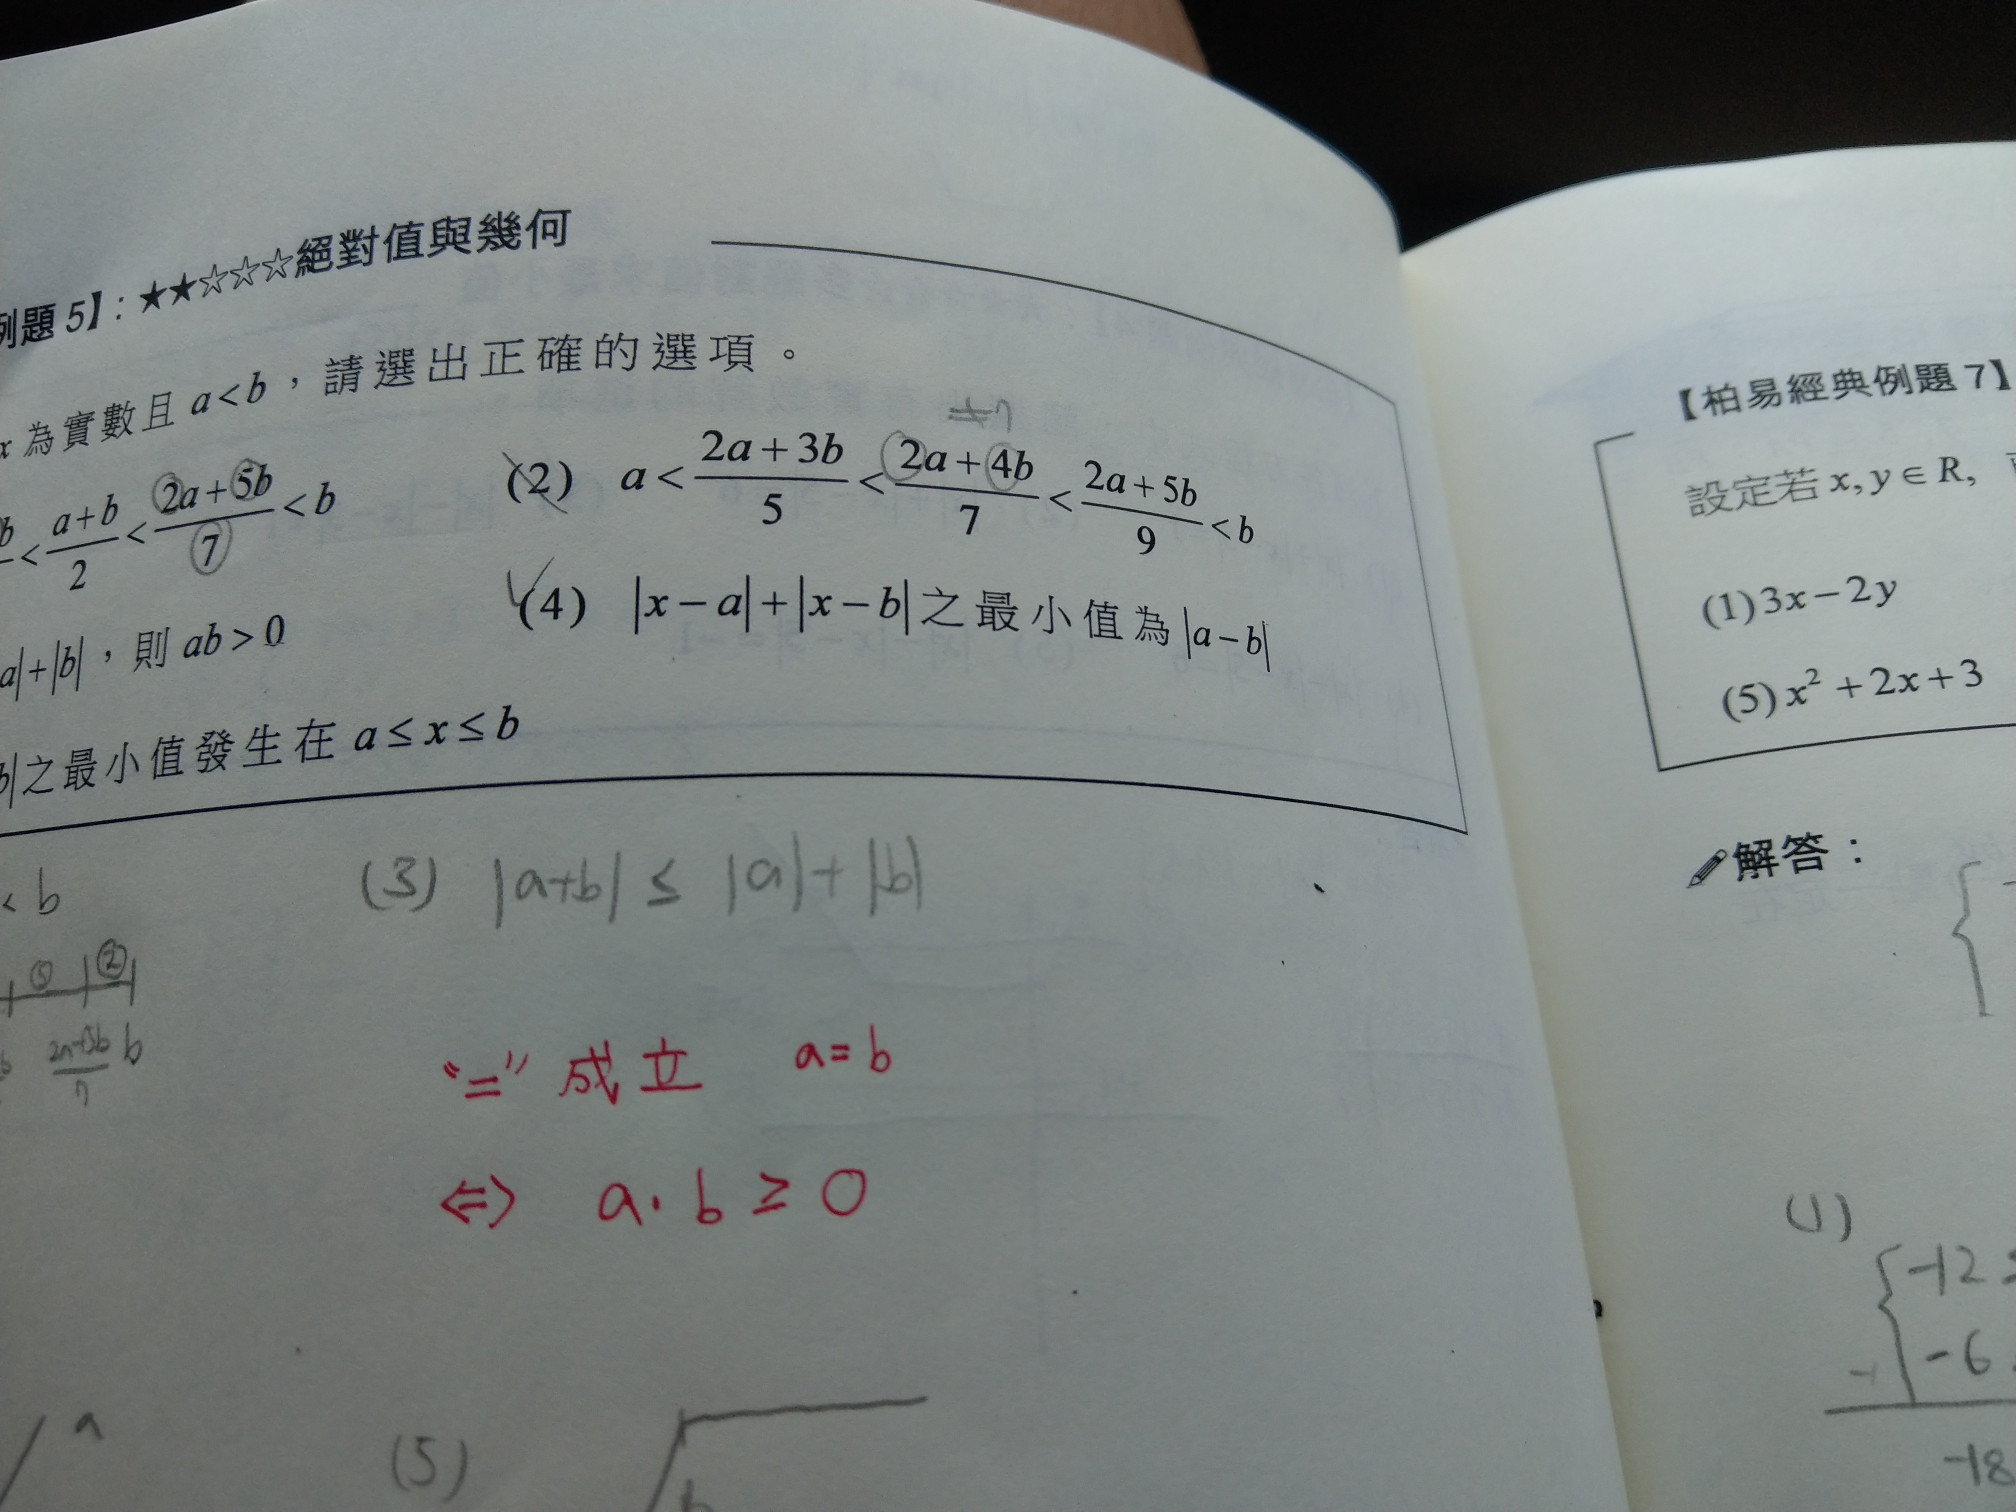 例題 5】: ★★☆☆☆絕對值與幾何
x 為實數且 a<b，請選出正確的選項。
b/ < (a+b)/2 < (2a+5b)/7 < b
(2) a < (2a+3b)/5 < (2a+4b)/7 < (2a+5b)/9 < b
≠7
a|+|b|，則 ab>0
(4) |x−a|+|x−b|之最小值為|a−b|
b|之最小值發生在 a≤x≤b
< b
(3) |a+b| ≤ |a|+|b|
⑤ ②
(2a+5b)/7 b
"=" 成立 a=b
⇔ a·b ≥ 0
a
(5)
b
【柏易經典例題 7】
設定若 x, y ∈ R,
(1) 3x−2y
(5) x² + 2x + 3
解答：
(1)
{ −12 ≤
−6
−18